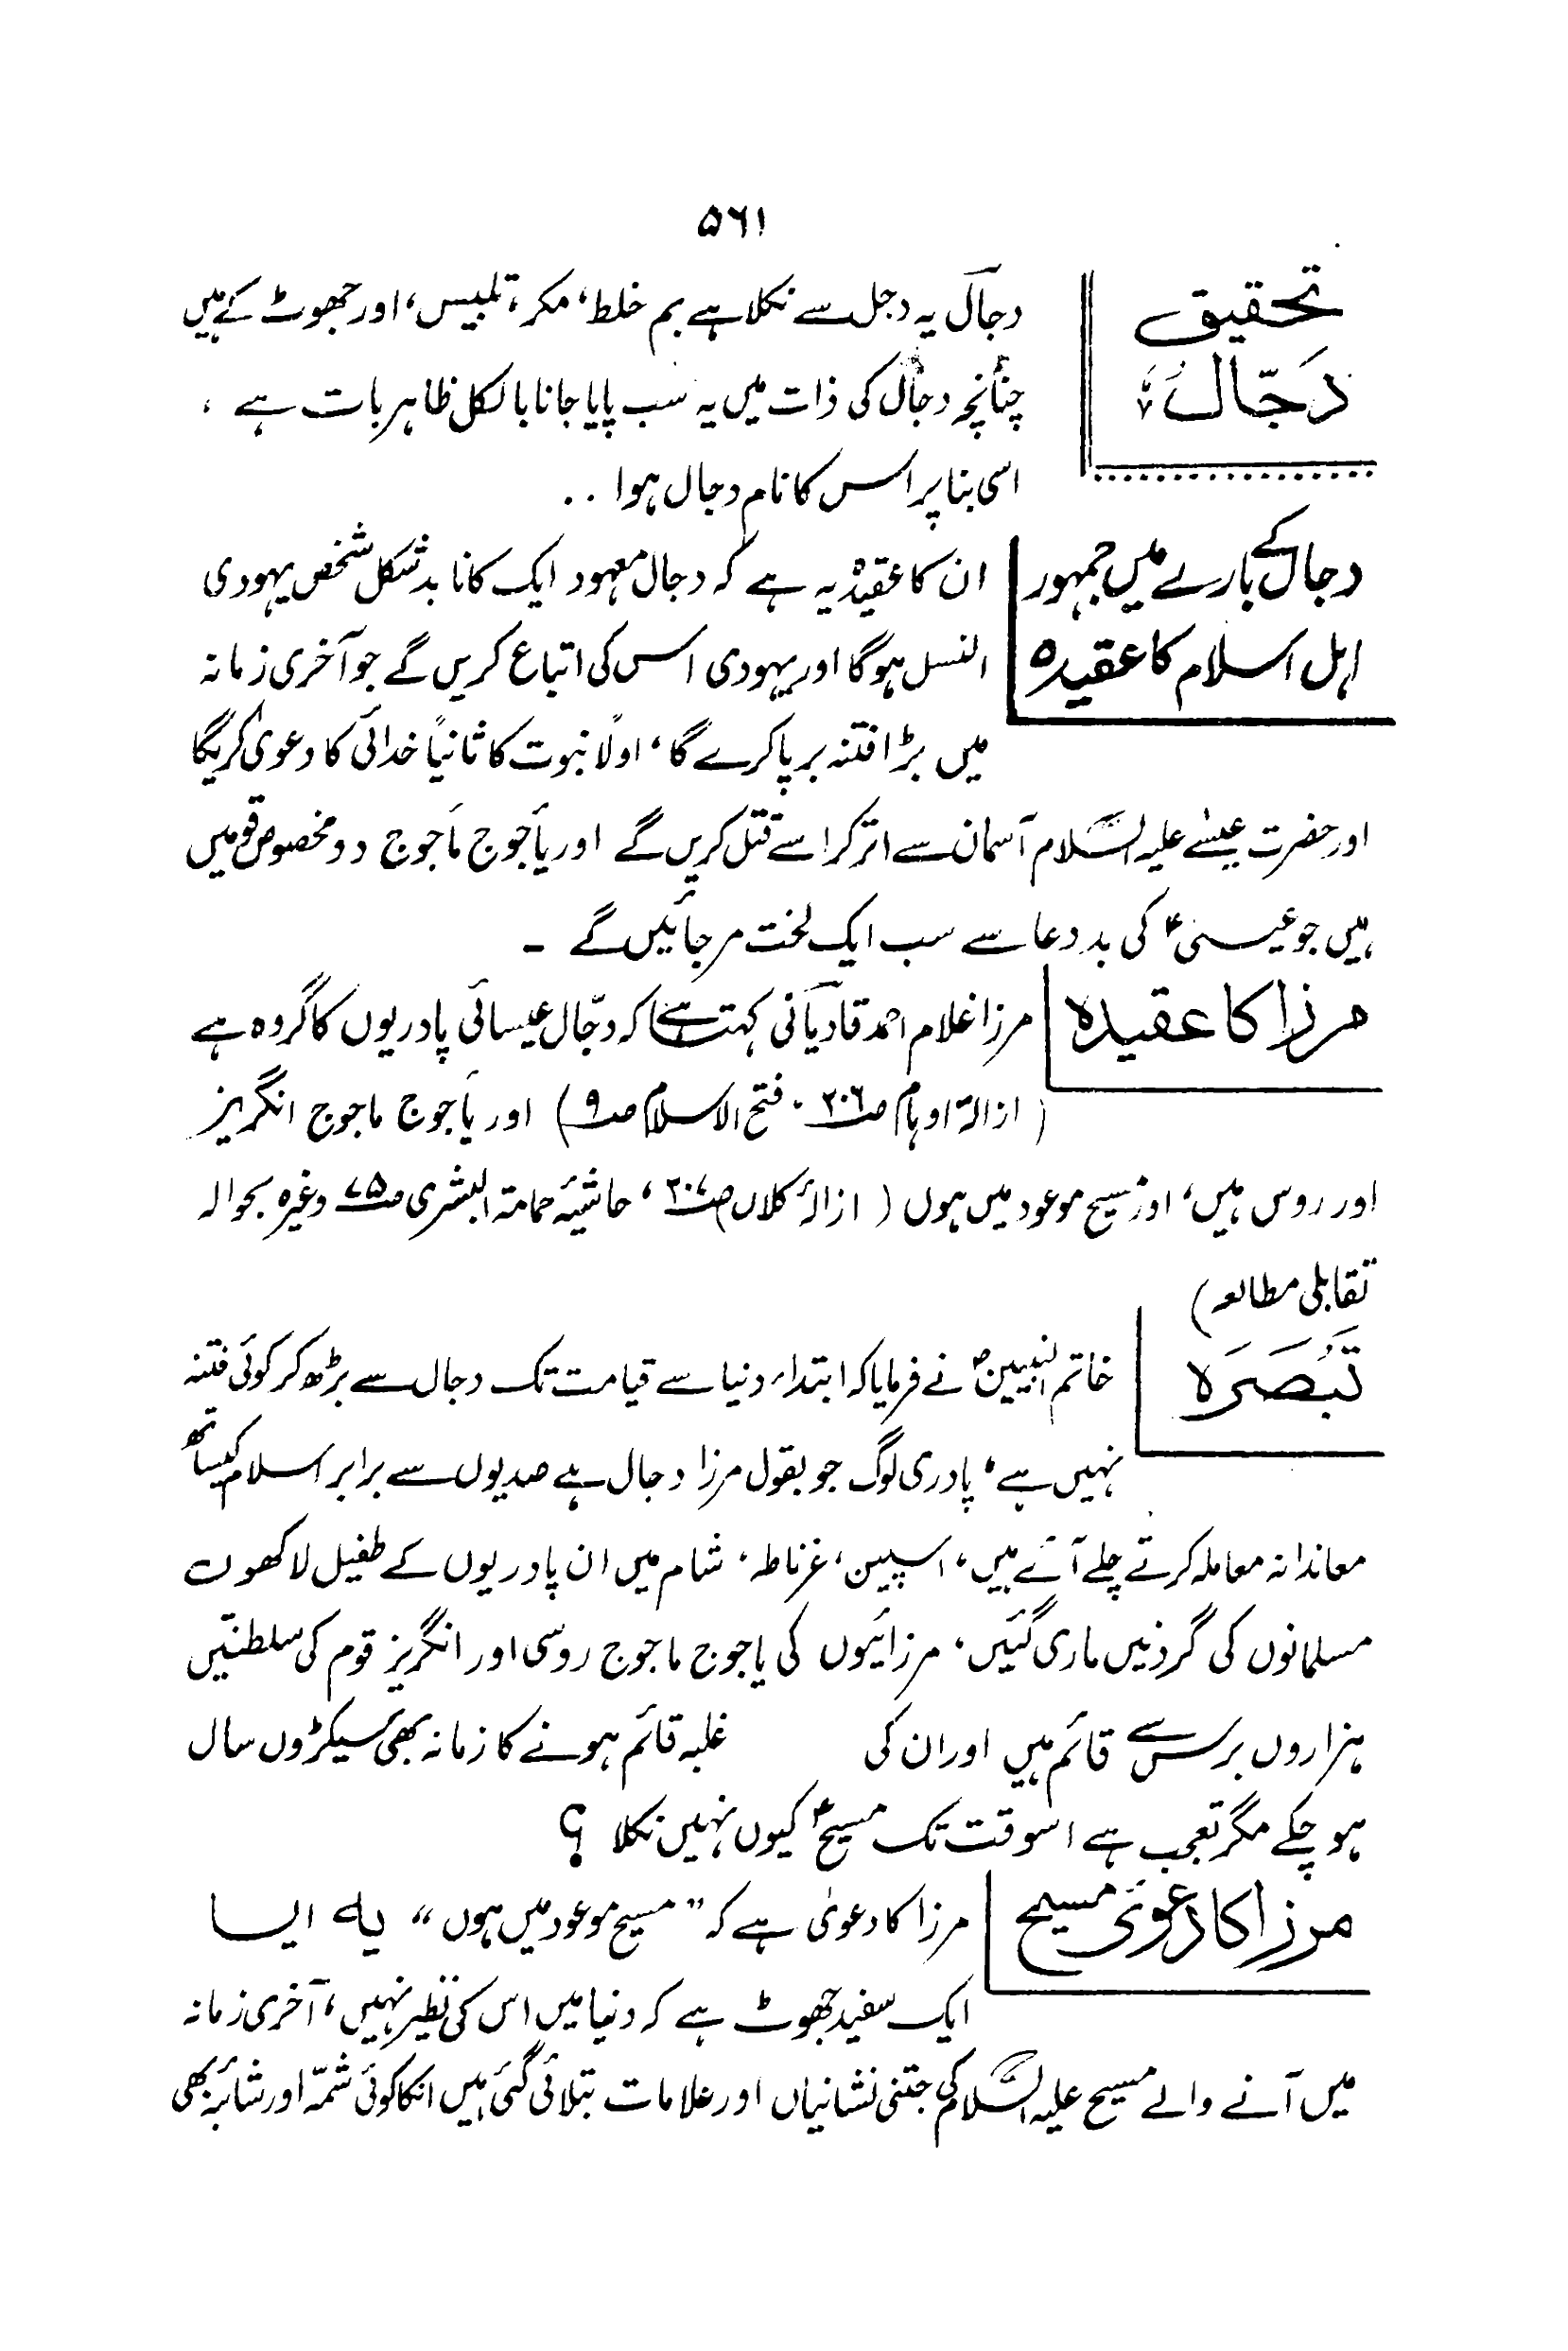 ۵۶۱
تحقیق
دَجّال:
دجال یہ دجل سے نکلا ہے بم خلط، مکر، تلبیس، اور جھوٹ کے ہیں
چنانچہ دجال کی ذات میں یہ سب پایا جانا بالکل ظاہر بات ہے ،
اسی بنا پر اس کا نام دجال ہوا ..
دجال کے بارے میں جمہور
اہل اسلام کا عقیدہ
ان کا عقیدہ یہ ہے کہ دجال معہود ایک کانا بدشکل شخص یہودی
النسل ہوگا اور یہودی اس کی اتباع کریں گے جو آخری زمانہ
میں بڑا فتنہ برپا کرے گا، اولاً نبوت کا ثانیاً خدائی کا دعویٰ کریگا
اور حضرت عیسےٰ علیہ السَّلام آسمان سے اتر کر اسے قتل کریں گے اور یأجوج مأجوج دو مخصوص قومیں
ہیں جو عیسٰی ؑ کی بددعا سے سب ایک لخت مرجائیں گے ۔
مرزا کا عقیدہ
مرزا غلام احمد قادیانی کہتا ہے کہ دجّال عیسائی پادریوں کا گروہ ہے
( ازالۃ اوہام صـ۲۰۶ ۔ فتح الاسلام صـ۹ ) اور یأجوج ماجوج انگریز
اور روس ہیں، اور مسیح موعود میں ہوں ( ازالۂ کلاں صـ۲۰۷ ، حاشیۂ حمامۃ البشریٰ صـ۷۵ وغیرہ بحوالہ
تقابلی مطالعہ )
تَبُصَرَہ
خاتم النبیین ؐ نے فرمایا کہ ابتداء دنیا سے قیامت تک دجال سے بڑھ کر کوئی فتنہ
نہیں ہے، پادری لوگ جو بقول مرزا دجال ہے صدیوں سے برابر اسلام کیساتھ
معاندانہ معاملہ کرتے چلے آئے ہیں، اسپین، غرناطہ، شام میں ان پادریوں کے طفیل لاکھوں
مسلمانوں کی گردنیں ماری گئیں، مرزائیوں کی یاجوج ماجوج روسی اور انگریز قوم کی سلطنتیں
ہزاروں برس سے قائم ہیں اور ان کی غلبہ قائم ہونے کا زمانہ بھی سیکڑوں سال
ہوچکے مگر تعجب ہے اسوقت تک مسیح ؑ کیوں نہیں نکلا ؟
مرزا کا دعویٰ مسیح
مرزا کا دعویٰ ہے کہ ”مسیح موعود میں ہوں“ یہ ایسا
ایک سفید جھوٹ ہے کہ دنیا میں اس کی نظیر نہیں، آخری زمانہ
میں آنے والے مسیح علیہ السَّلام کی جتنی نشانیاں اور علامات بتلائی گئی ہیں انکا کوئی شمّہ اور شائبہ بھی